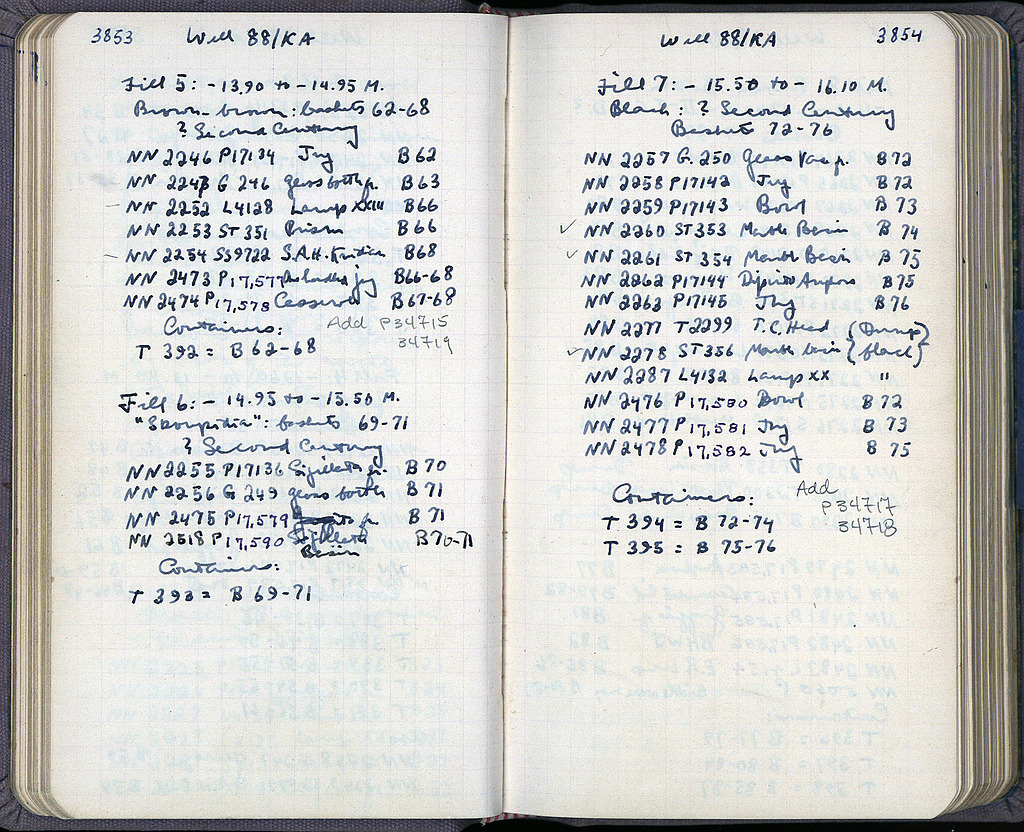 3853 Well 88/KA
Fill 5: -13.90 to -14.95 M.
Brown-brown: baskets 62-68
? Second Century
NN 2246 P17134 Jug B62
NN 2247 G 246 glass bottle fr. B63
NN 2252 L4128 Lamp XXIII B66
NN 2253 ST 351 B66
NN 2254 SS9722 S.A.H. Knidian B68
NN 2473 P17,577 jug B66-68
NN 2474 P17,578 Casserole B67-68
Containers: Add P34715
T 392 = B62-68 34719
Fill 6: -14.95 to -15.50 M.
"Skoupidia": baskets 69-71
? Second Century
NN 2255 P17136 Sigillata fr. B70
NN 2256 G 249 glass bottle B71
NN 2475 P17,579 fr. B71
NN 2518 P17,590 Sigillata B70-71
Basin
Containers:
T 393 = B69-71
Well 88/KA 3854
Fill 7: -15.50 to -16.10 M.
Black: ? Second Century
Baskets 72-76
NN 2257 G.250 glass vase fr. B72
NN 2258 P17142 Jug B72
NN 2259 P17143 Bowl B73
✓ NN 2260 ST353 Marble Basin B74
✓ NN 2261 ST 354 Marble Basin B75
NN 2262 P17144 Dipinto Amphora B75
NN 2263 P17145 Jug B76
NN 2277 T2299 T.C. Head (Dump)
✓ NN 2278 ST356 Marble basin (black)
NN 2287 L4132 Lamp XX "
NN 2476 P17,580 Bowl B72
NN 2477 P17,581 Jug B73
NN 2478 P17,582 Jug B75
Containers: Add
P34717
T 394 = B72-74 34718
T 395 = B75-76